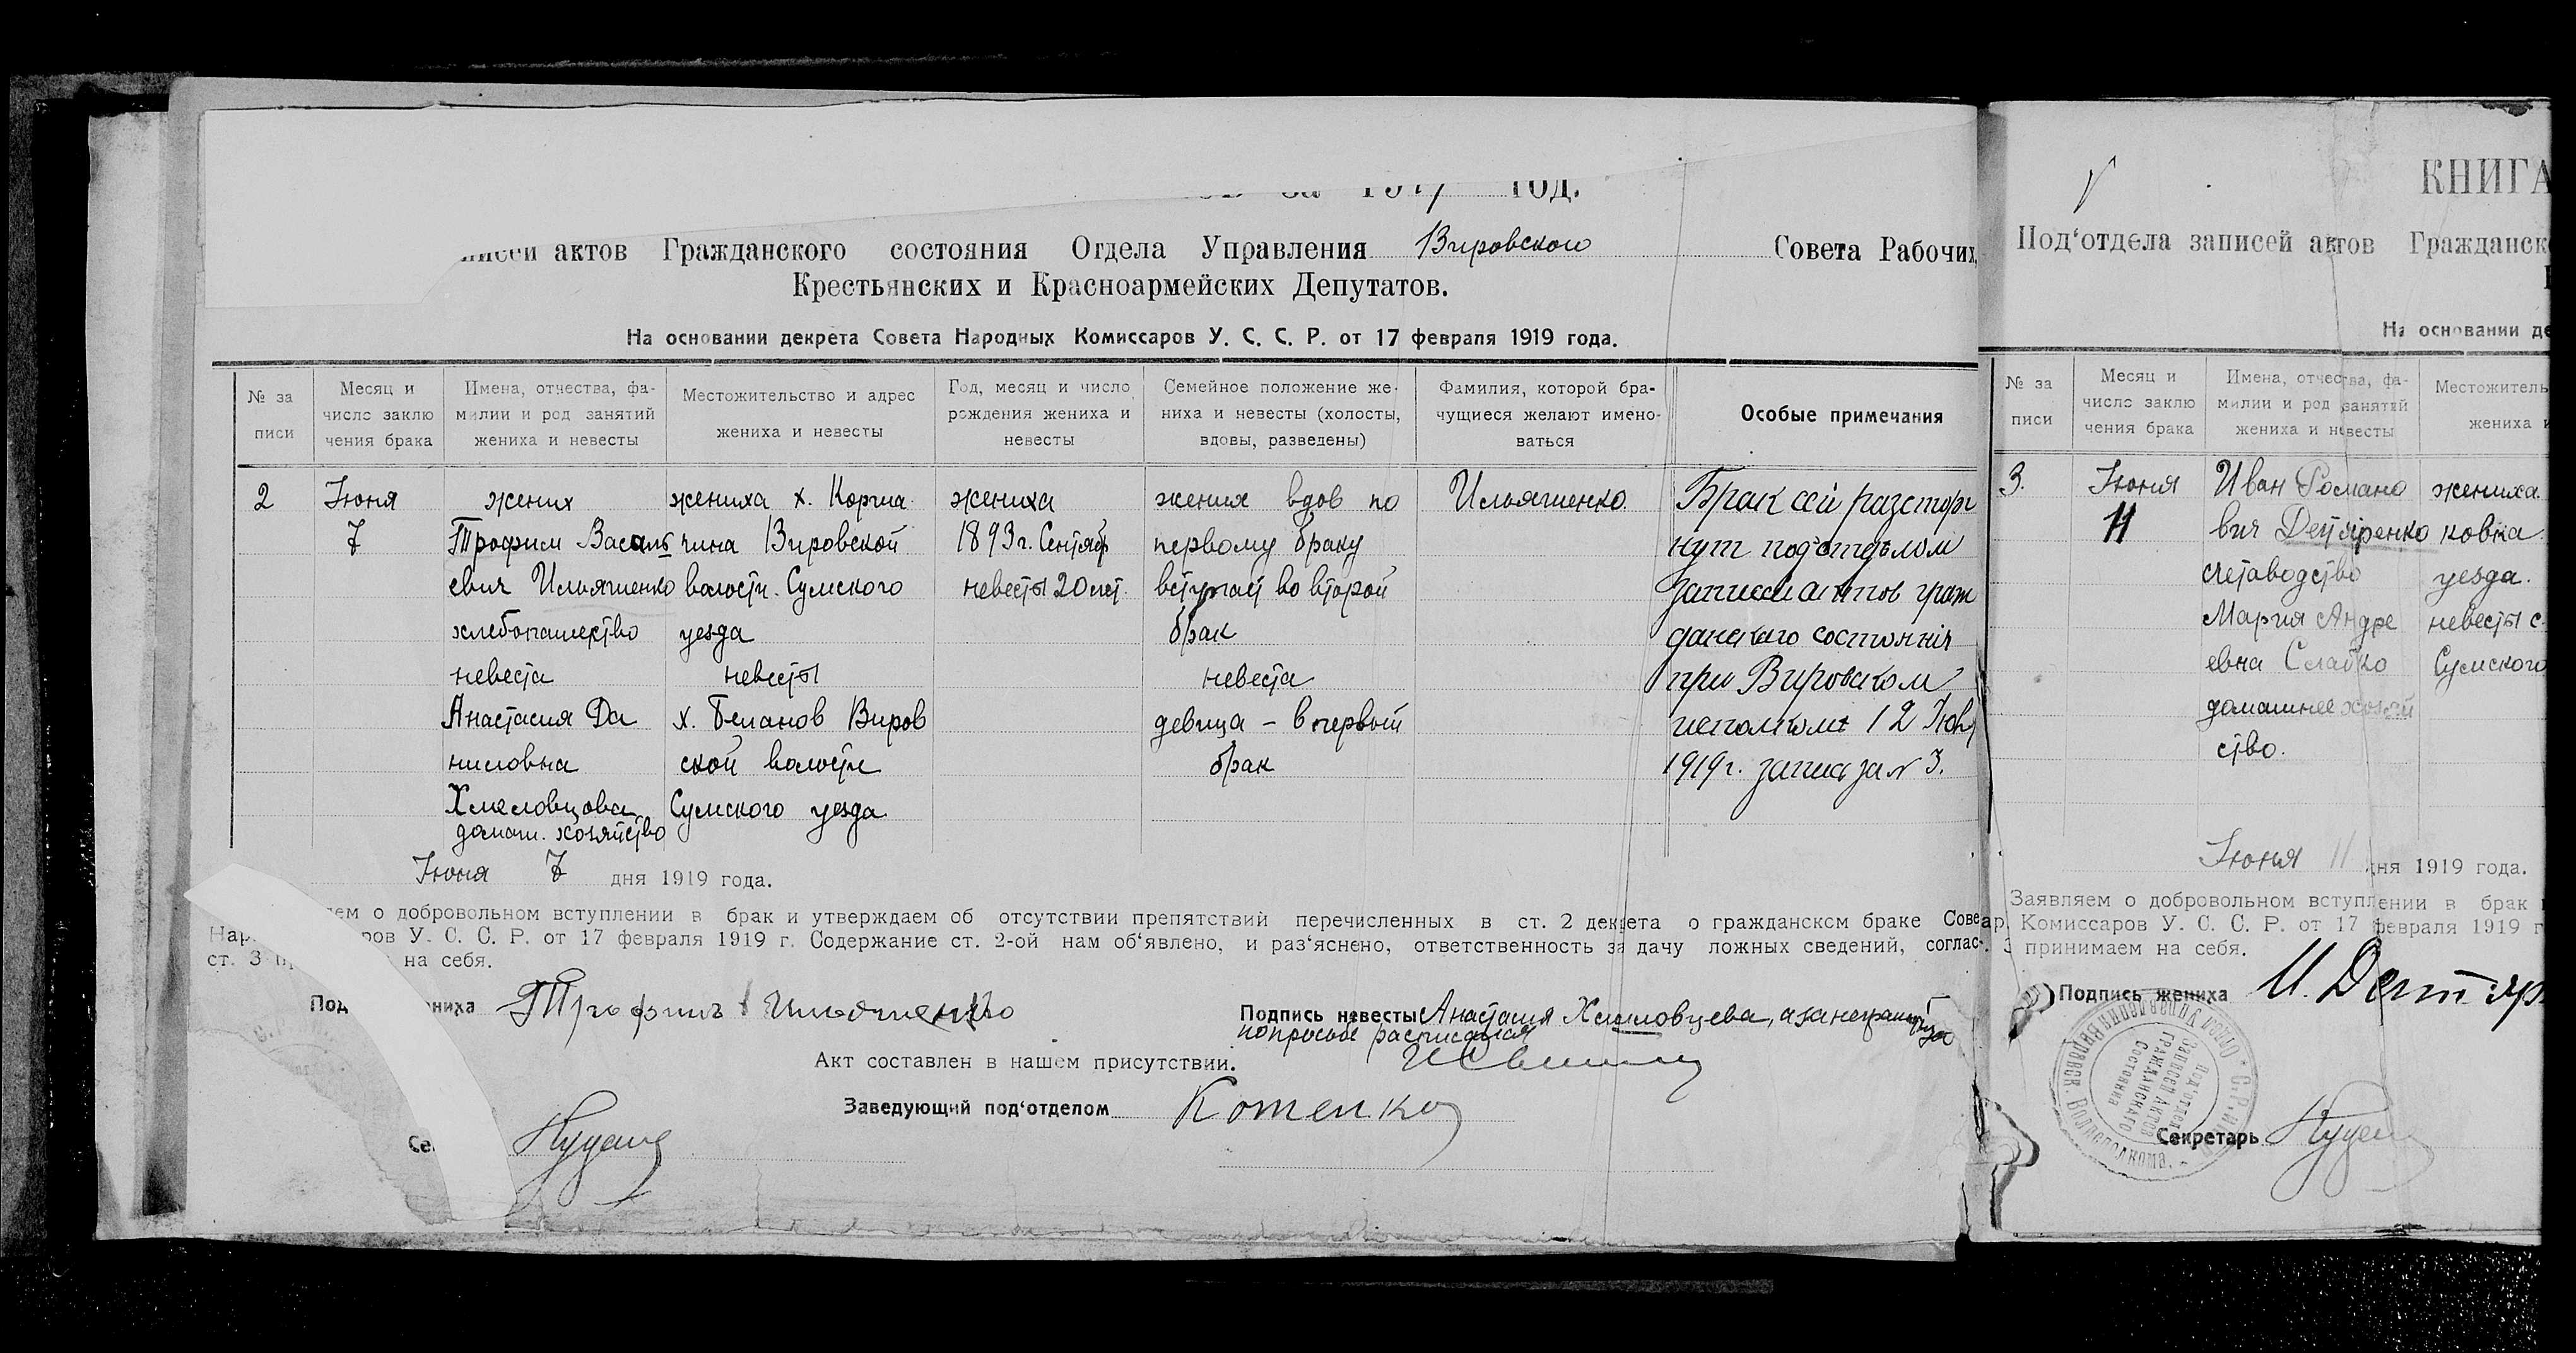 за 1917 год.
писей актов Гражданского состояния Отдела Управления Вировской Совета Рабочих,
Крестьянских и Красноармейских Депутатов.
На основании декрета Совета Народных Комиссаров У. С. С. Р. от 17 февраля 1919 года.
№ за
писи
Месяц и
число заклю
чения брака
Имена, отчества, фа-
милии и род занятий
жениха и невесты
Местожительство и адрес
жениха и невесты
Год, месяц и число
рождения жениха и
невесты
Семейное положение же-
ниха и невесты (холосты,
вдовы, разведены)
Фамилия, которой бра-
чущиеся желают имено-
ваться
Особые примечания
2
Июня
7
жених
Трофим Василь
евич Ильяшенко
хлебопашество
невеста
Анастасия Да
ниловна
Хмеловцова
домаш. хозяйство
жениха х. Корча
чина Вировской
волости. Сумского
уезда
невесты
х. Беланов Виров
ской волости
Сумского уезда
жениха
1893 г. Сентябр
невесты 20 лет.
жених вдов по
первому браку
вступает во второй
брак
невеста
девица - в первый
брак
Ильяшенко.
Брак сей расторг
нут подотделом
записи актов граж
данскаго состояния
при Вировском
исполкоме 12 Июл
1919 г. запись за № 3.
Июня 7 дня 1919 года.
ем о добровольном вступлении в брак и утверждаем об отсутствии препятствий перечисленных в ст. 2 декрета о гражданском браке Сове
Нар ров У. С. С. Р. от 17 февраля 1919 г. Содержание ст. 2-ой нам об‘явлено, и раз‘яснено, ответственность за дачу ложных сведений, соглас.
ст. 3 на себя.
Под ниха Трофимъ Ильяшенко
Подпись невесты Анастасия Хмиловцева, а за неграмотную
по просьбе расписался
Акт составлен в нашем присутствии.
Заведующий под‘отделом Котенко
Се
КНИГА
Под‘отдела записей актов Гражданск
На основании де
№ за
писи
Месяц и
число заклю
чения брака
Имена, отчества, фа-
милии и род занятий
жениха и невесты
Местожитель
жениха и
3.
Июня
11
Иван Романо
вич Дегтяренко
счетоводство
Мария Андре
евна Слайко
домашнее хозяй
ство.
жениха.
ковка.
уезда.
невесты с.
Сумского
Июня 11 дня 1919 года.
Заявляем о добровольном вступлении в брак и
ар. Комиссаров У. С. С. Р. от 17 февраля 1919 г
3 принимаем на себя.
Подпись жениха И. Дегтяр
Под‘отдел
Записей актов
Гражданскаго
Состояния
Секретарь